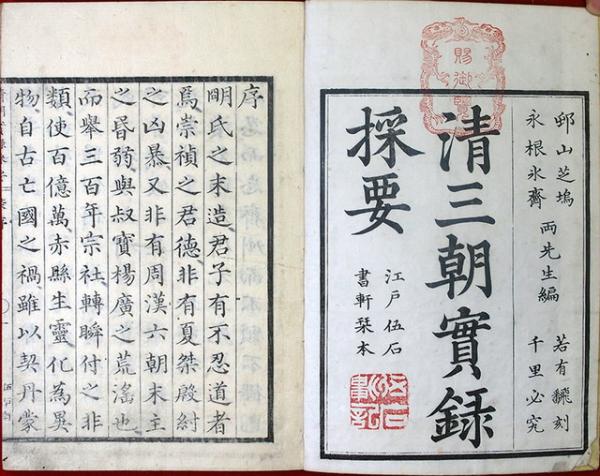 賜御覽
邨山芝塢
永根氷齋
兩先生編
若有飜刻
千里必究
清三朝實録
採要
江戸伍石
書軒栞本
序
明氏之末造君子有不忍道者
焉崇禎之君德非有夏桀殷紂
之凶暴又非有周漢六朝末主
之昏弱與叔寶楊廣之荒滛也
而舉三百年宗社轉瞬付之非
類使百億萬赤縣生靈化為異
物自古亡國之禍雖以契丹蒙